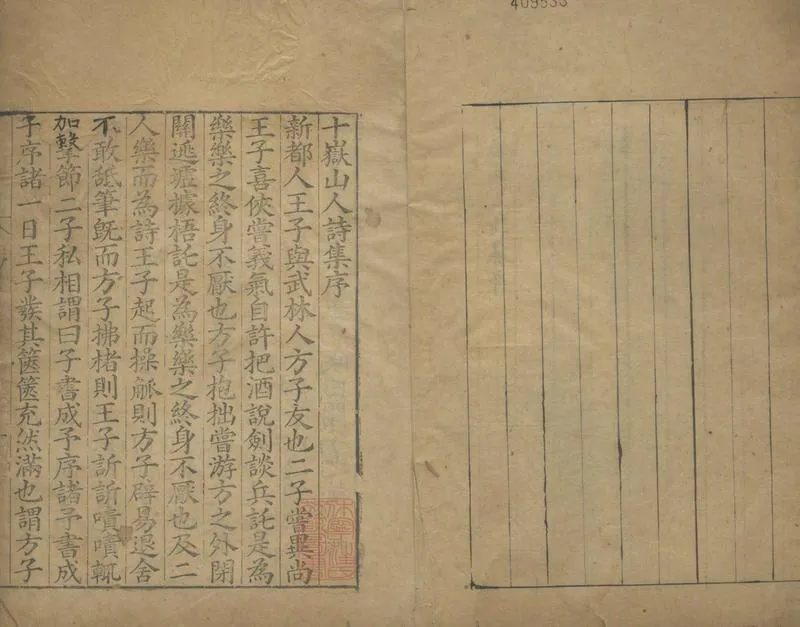 409533
十嶽山人詩集序
新都人王子與武林人方子友也二子嘗異尚
王子喜俠嘗義氣自許把酒說劍談兵託是為
樂樂之終身不厭也方子抱拙嘗游方之外閉
關逃虛據梧託是為樂樂之終身不厭也及二
人樂而為詩王子起而操觚則方子辟易退舍
不敢舐筆既而方子拂楮則王子訢訢嘖嘖輒
加擊節二子私相謂曰子書成予序諸予書成
子序諸一日王子發其篋篋充然滿也謂方子